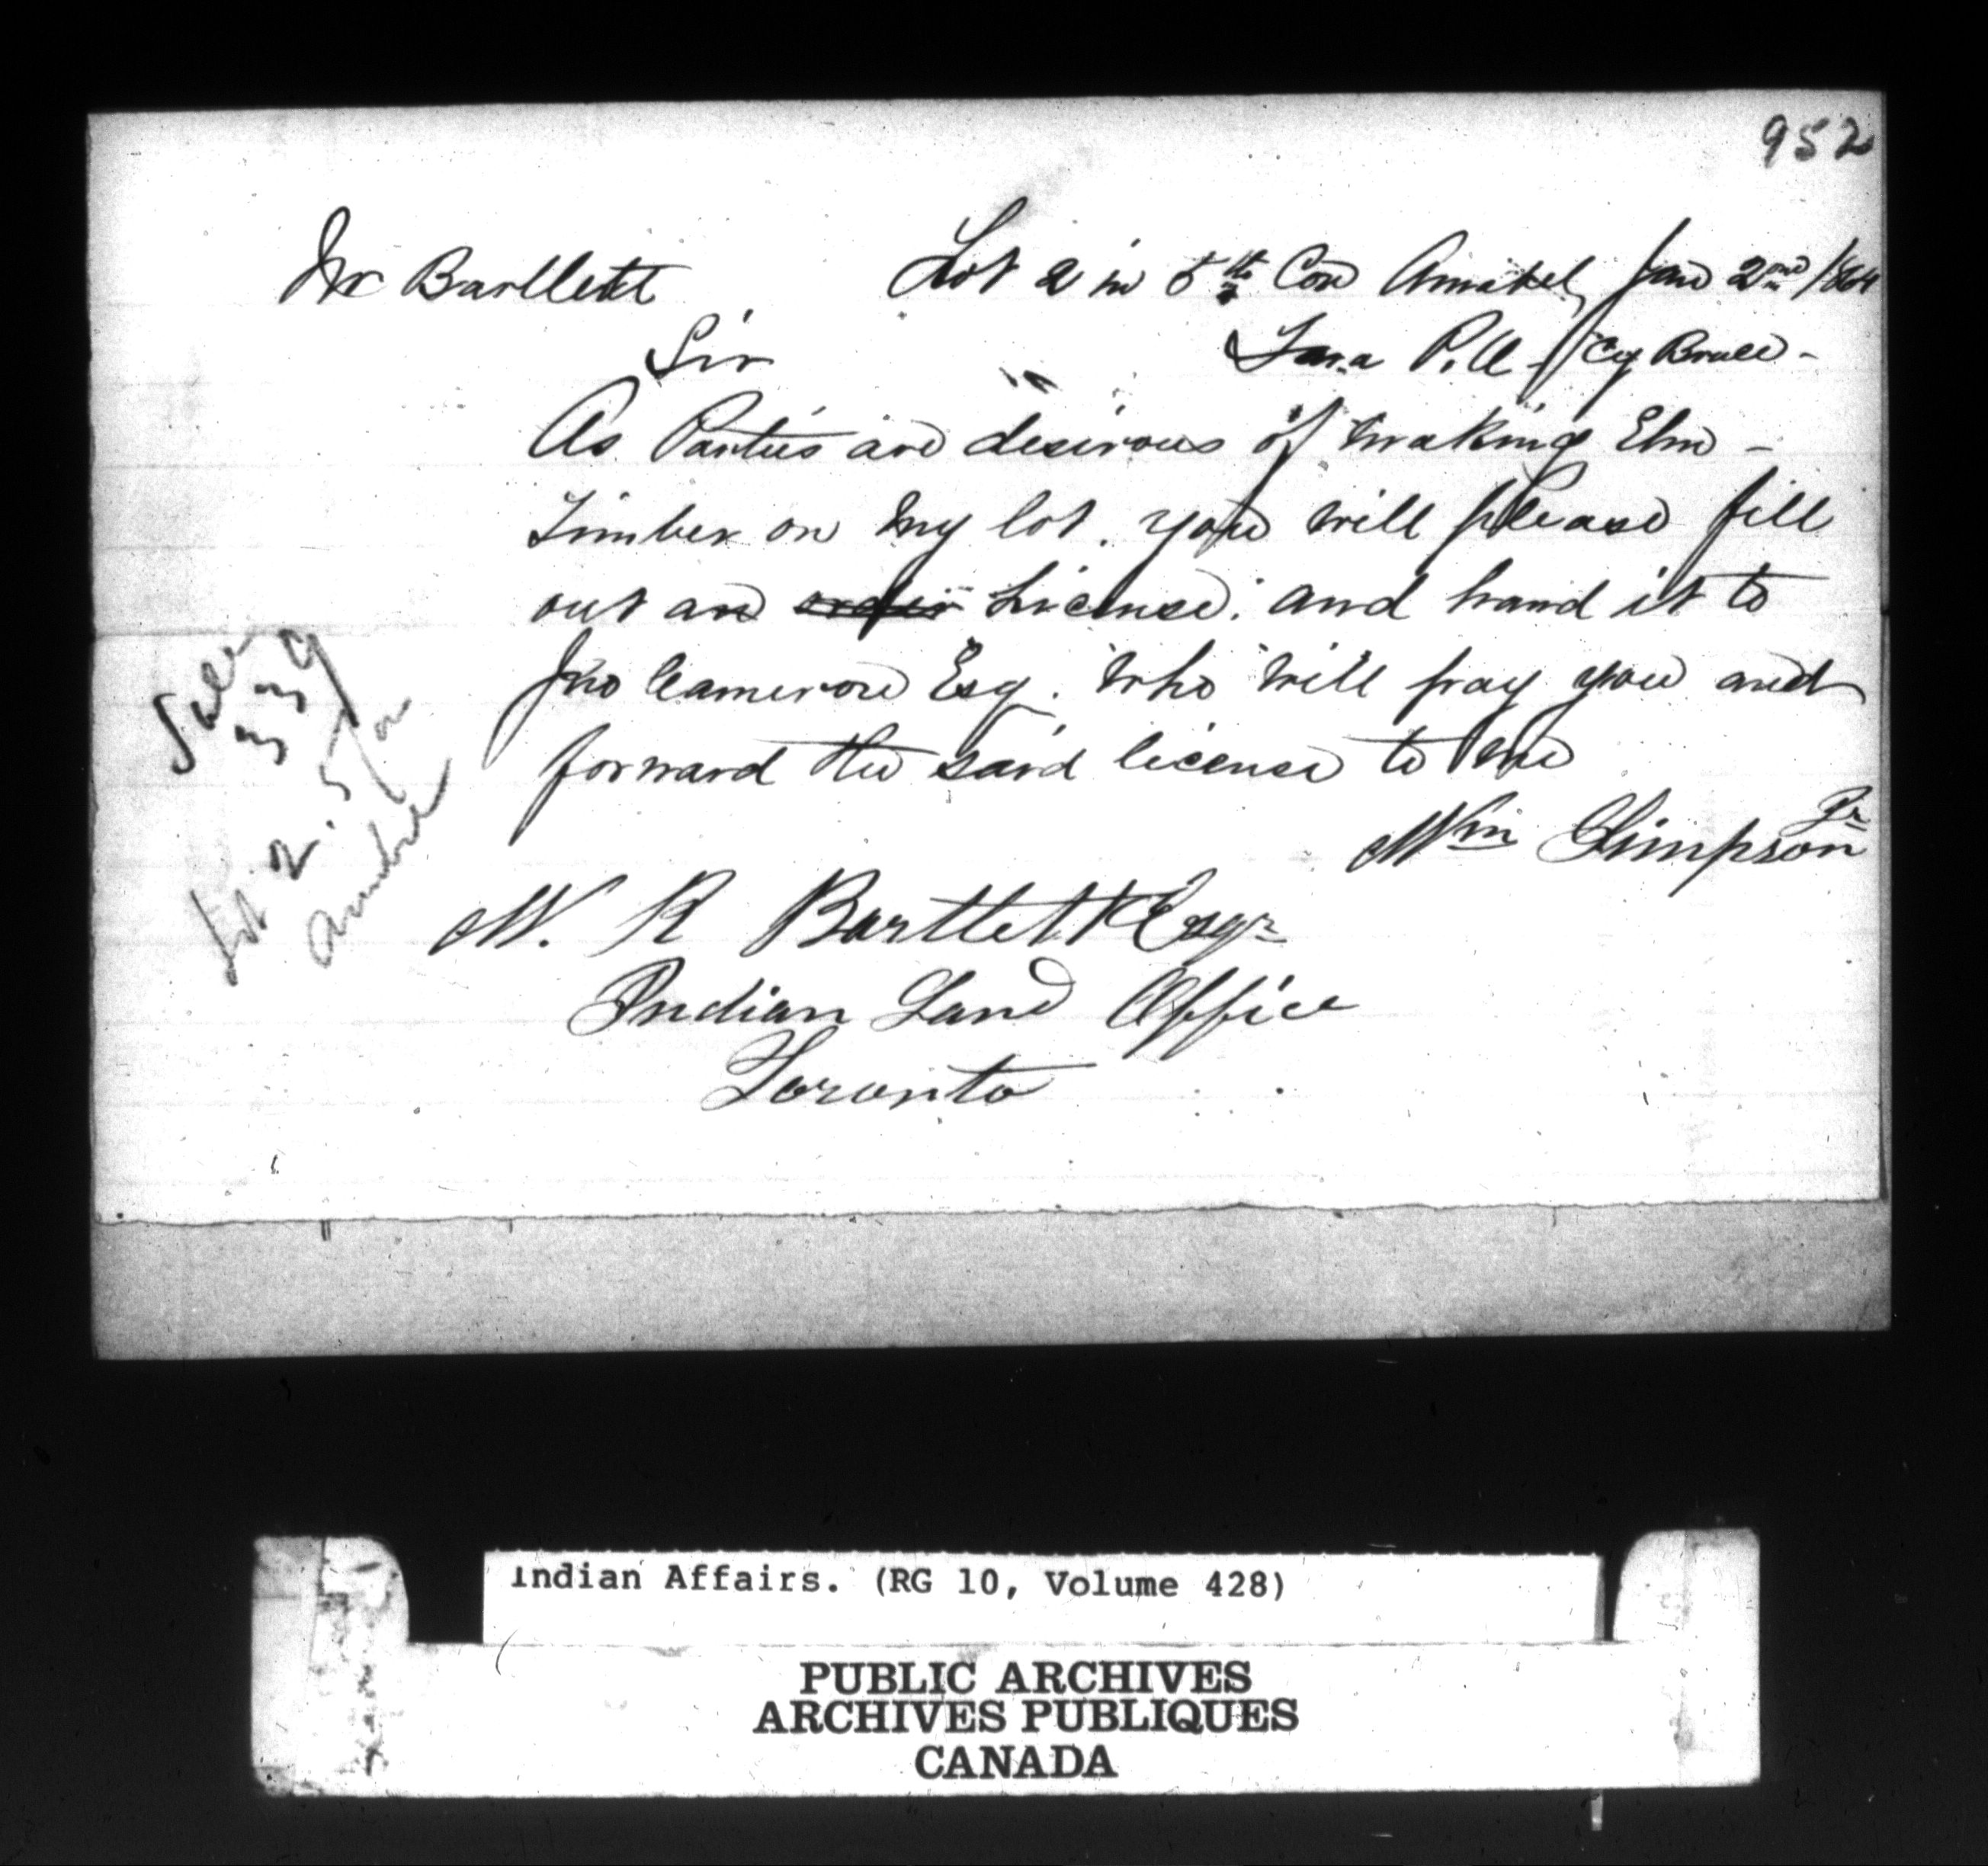 952
Mr Bartlett Lot 2 in 5th Con Amabel Jan 2nd /1864
Sir Tara P.O. Cy Bruce -
As Parties are desirous of making Elm -
Timber on my lot. you will please fill
out an order License. and hand it to
Jno Cameron Esq. who will pay you and
forward the said license to me
Wm Simpson Jr
W. R Bartlett Esqr
Indian Land Office
Toronto
Sale
339
Lot 2. 5 Con
Amabel
Indian Affairs. (RG 10, Volume 428)
PUBLIC ARCHIVES
ARCHIVES PUBLIQUES
CANADA